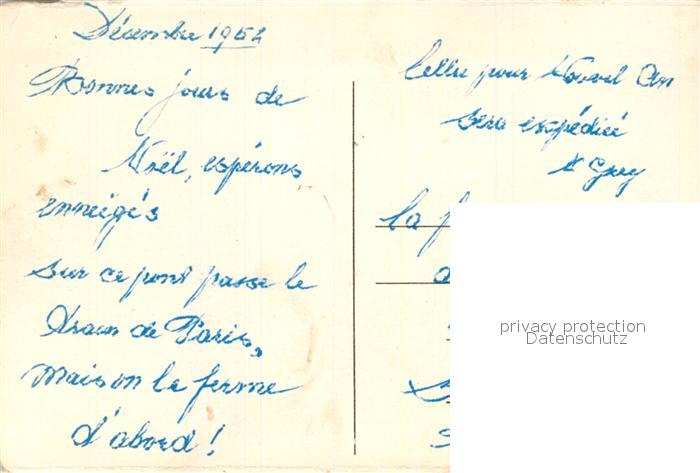 Décembre 1952
Bonnes jours de
Noël, espérons,
enneigés
sur ce pont passe le
train de Paris,
mais on le ferme
d'abord!
Lettre pour Nouvel An
sera expédiée
La
privacy protection
Datenschutz